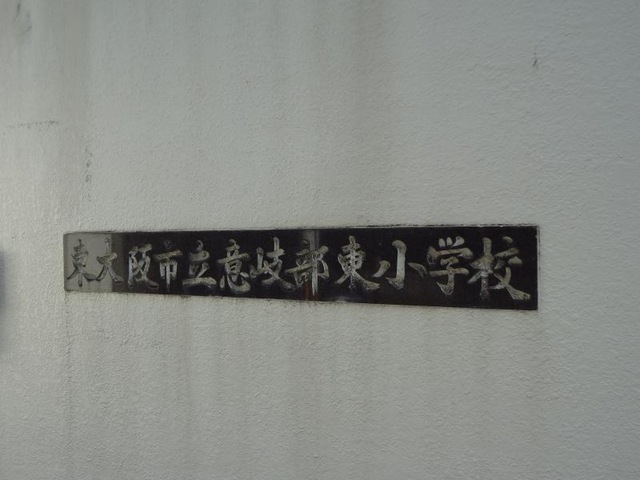 東大阪市立意岐部東小学校